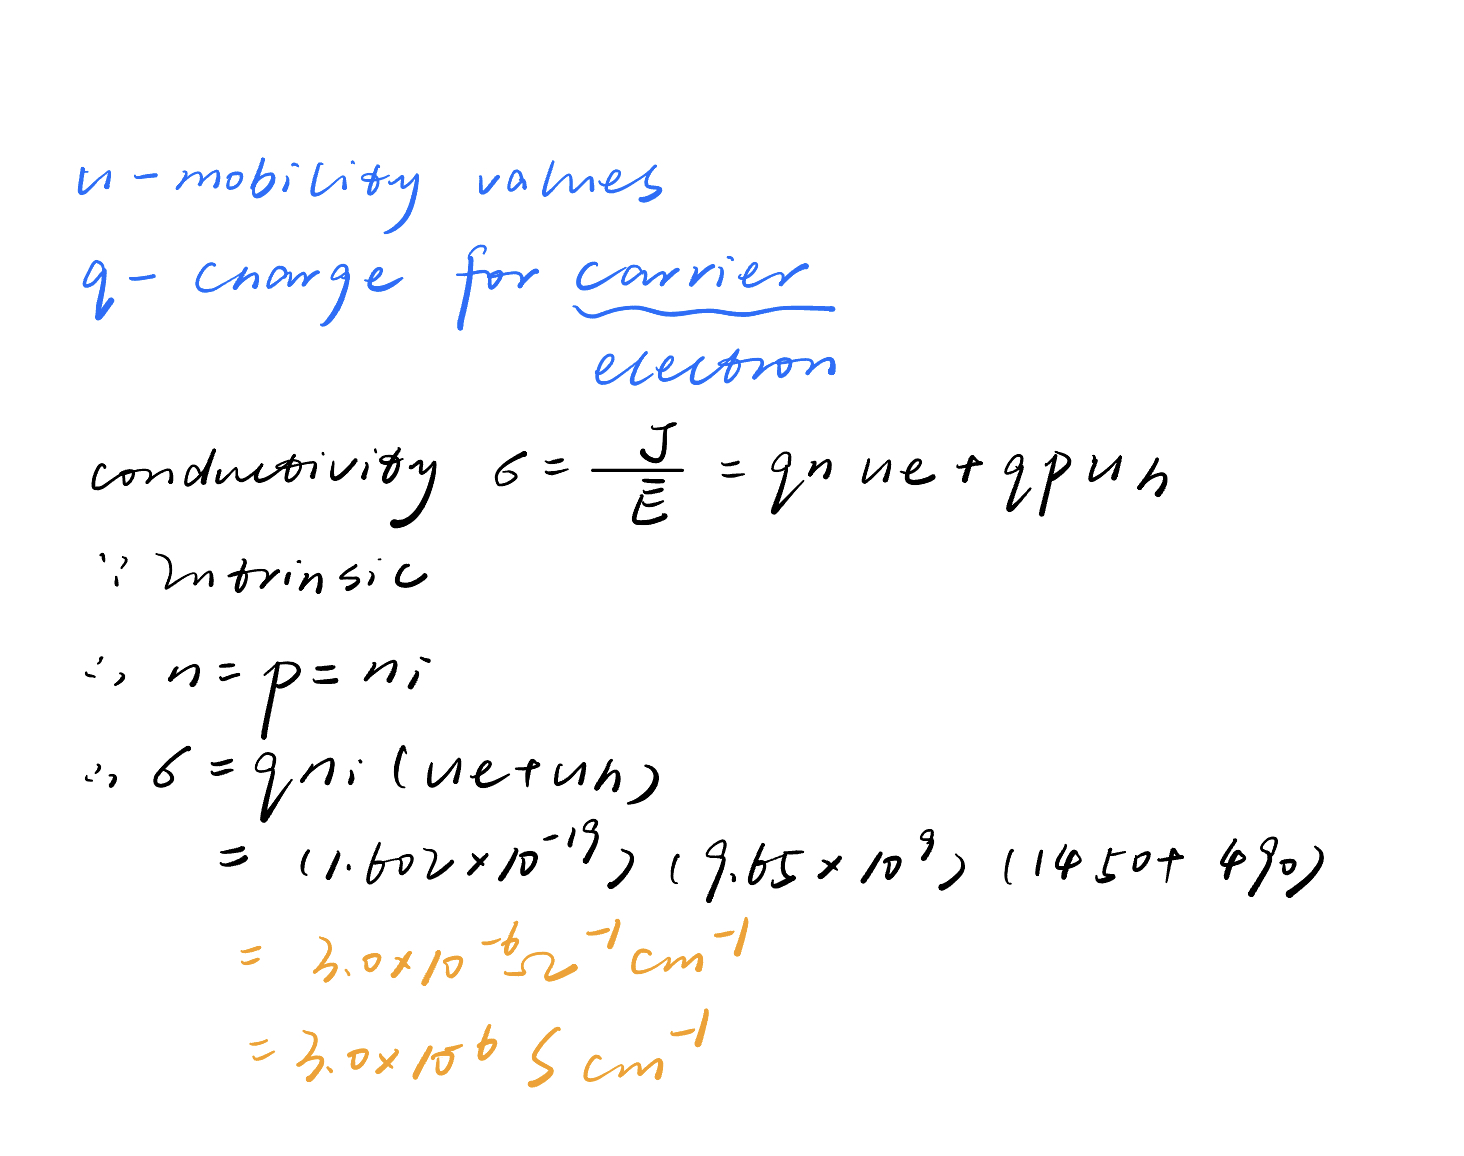 u - mobility values
q - charge for carrier
electron
conductivity σ = J/E = qn ue + qp uh
∵ Intrinsic
∴ n = p = ni
∴ σ = qni (ue+uh)
= (1.602×10⁻¹⁹) (9.65×10⁹) (1450+490)
= 3.0×10⁻⁶ Ω⁻¹ cm⁻¹
= 3.0×10⁶ S cm⁻¹